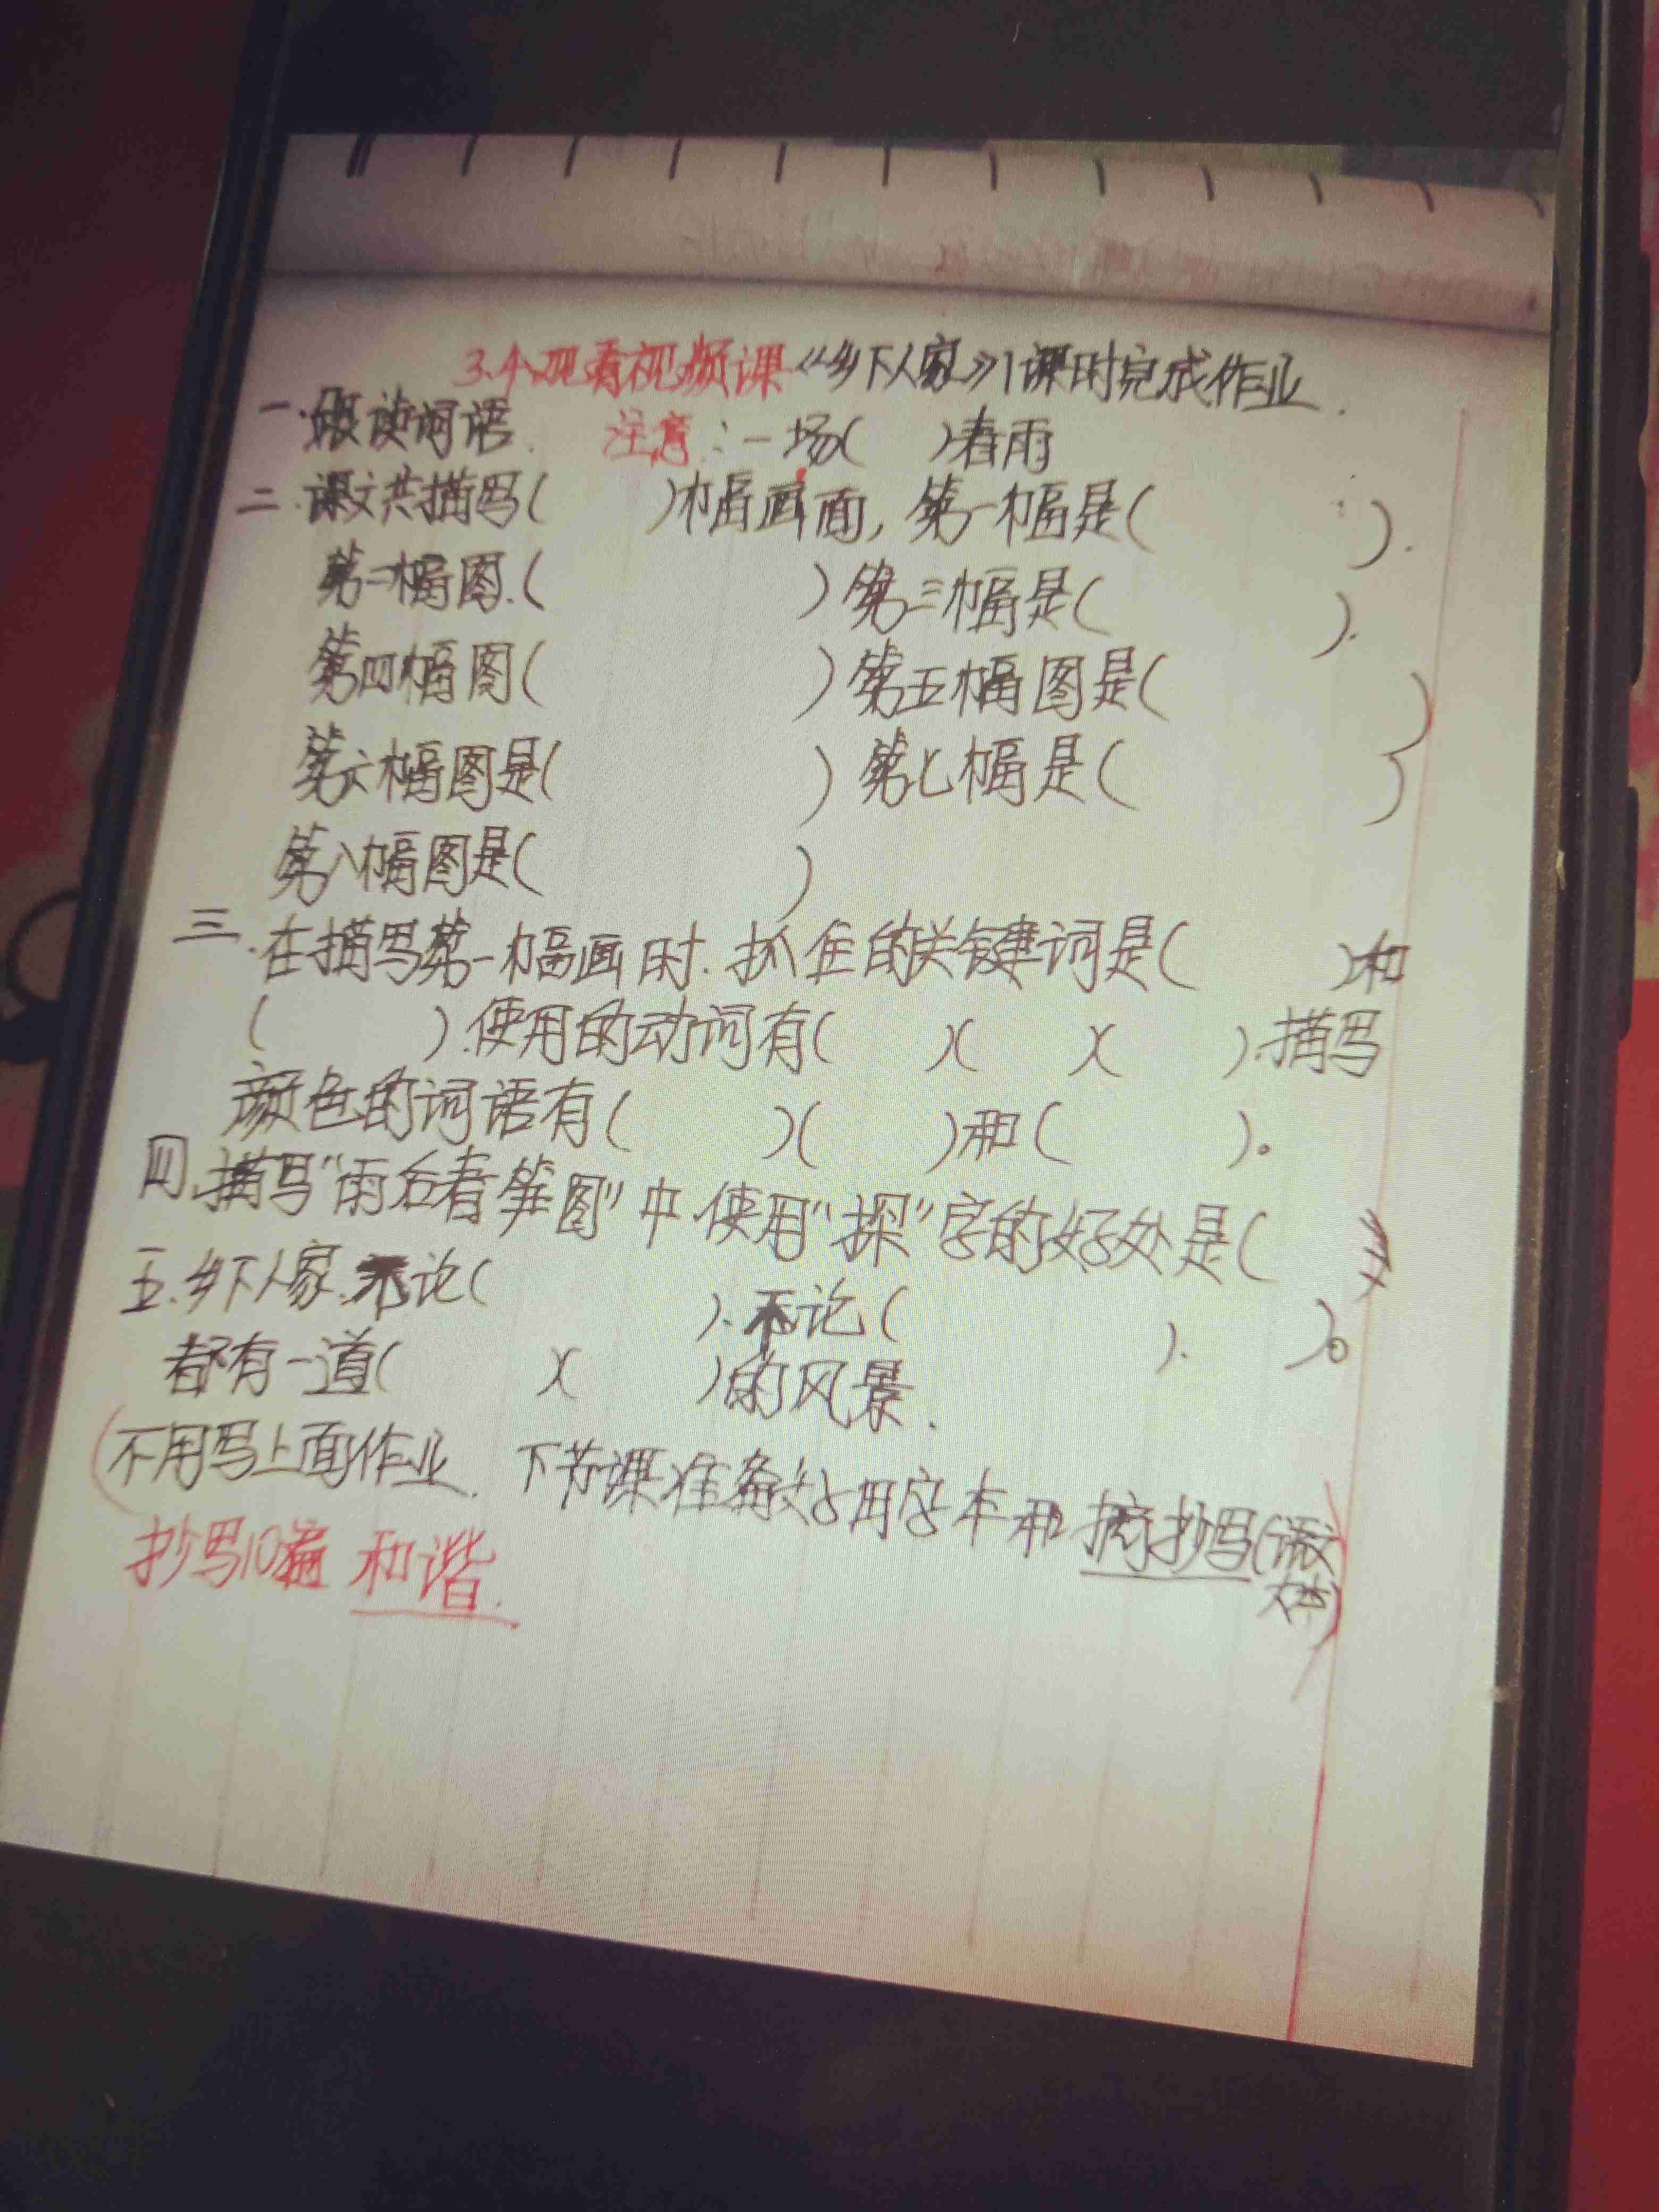 3.小观看视频课《乡下人家》1课时完成作业.
一.跟读词语. 注意:一场( )春雨
二.课文共描写( )幅画面,第一幅是( ).
第二幅图.( )第三幅是( ).
第四幅图( )第五幅图是( )
第六幅图是( )第七幅是( )
第八幅图是( )
三.在描写第一幅画时.抓住的关键词是( )和
( ).使用的动词有( )( )( ).描写
颜色的词语有( )( )和( )。
四.描写"雨后春笋图"中.使用"探"字的好处是(
)。
五.乡下人家.不论( ).不论( ).
都有一道( )( )的风景.
(不用写上面作业.下节课准备好田字本和摘抄写(语文
书)
抄写10遍 和谐.